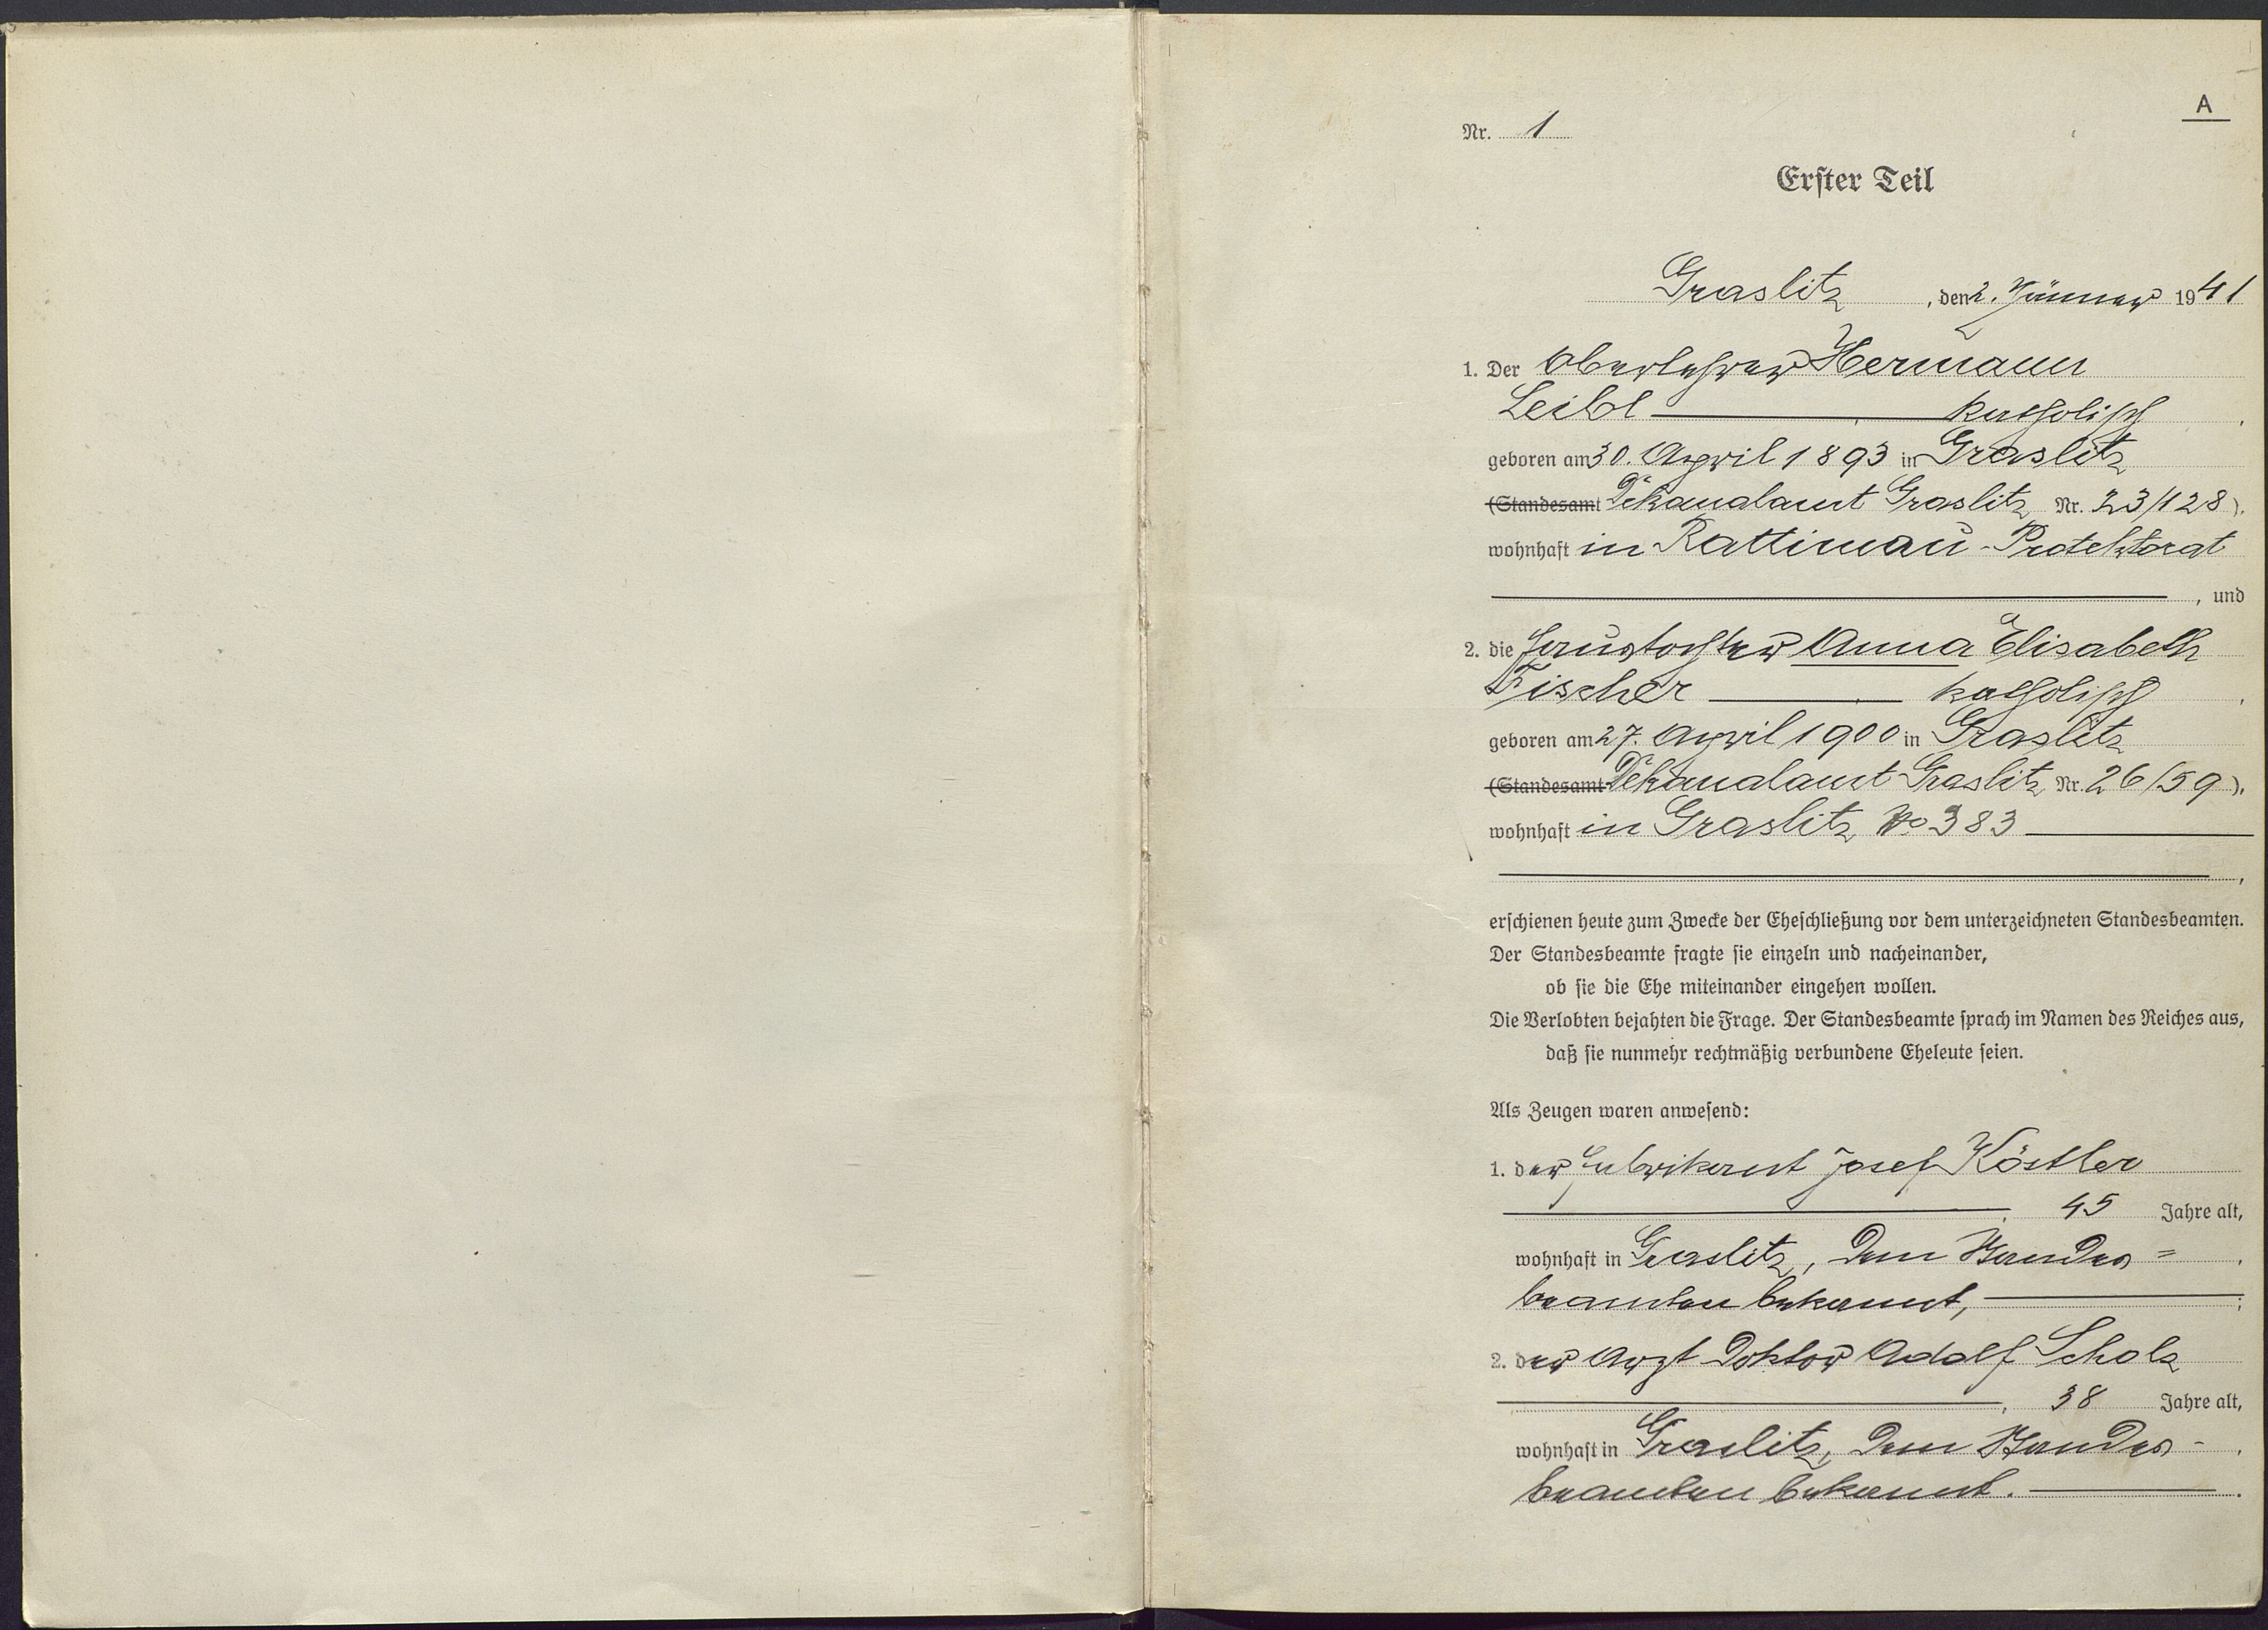 A
Nr. 1
Erster Teil
Graslitz, den 2. Jänner 1941
1. Der Oberlehrer Hermann
Leibl — katholisch,
geboren am 30. April 1893 in Graslitz
(Standesamt Dekanalamt Graslitz Nr. 23/128).
wohnhaft in Rattimau - Protektorat
, und
2. die Haustochter Anna Elisabeth
Fischer — katholisch,
geboren am 27. April 1900 in Graslitz
(Standesamt Dekanalamt Graslitz Nr. 26/59).
wohnhaft in Graslitz No 383 —
,
erschienen heute zum Zwecke der Eheschließung vor dem unterzeichneten Standesbeamten.
Der Standesbeamte fragte sie einzeln und nacheinander,
ob sie die Ehe miteinander eingehen wollen.
Die Verlobten bejahten die Frage. Der Standesbeamte sprach im Namen des Reiches aus,
daß sie nunmehr rechtmäßig verbundene Eheleute seien.
Als Zeugen waren anwesend:
1. der Fabrikant Josef Köstler
—, 45 Jahre alt,
wohnhaft in Graslitz, dem Standes=
beamten bekannt, —;
2. der Arzt Doktor Adolf Scholz
—, 38 Jahre alt,
wohnhaft in Graslitz, dem Standes-
beamten bekannt. —.